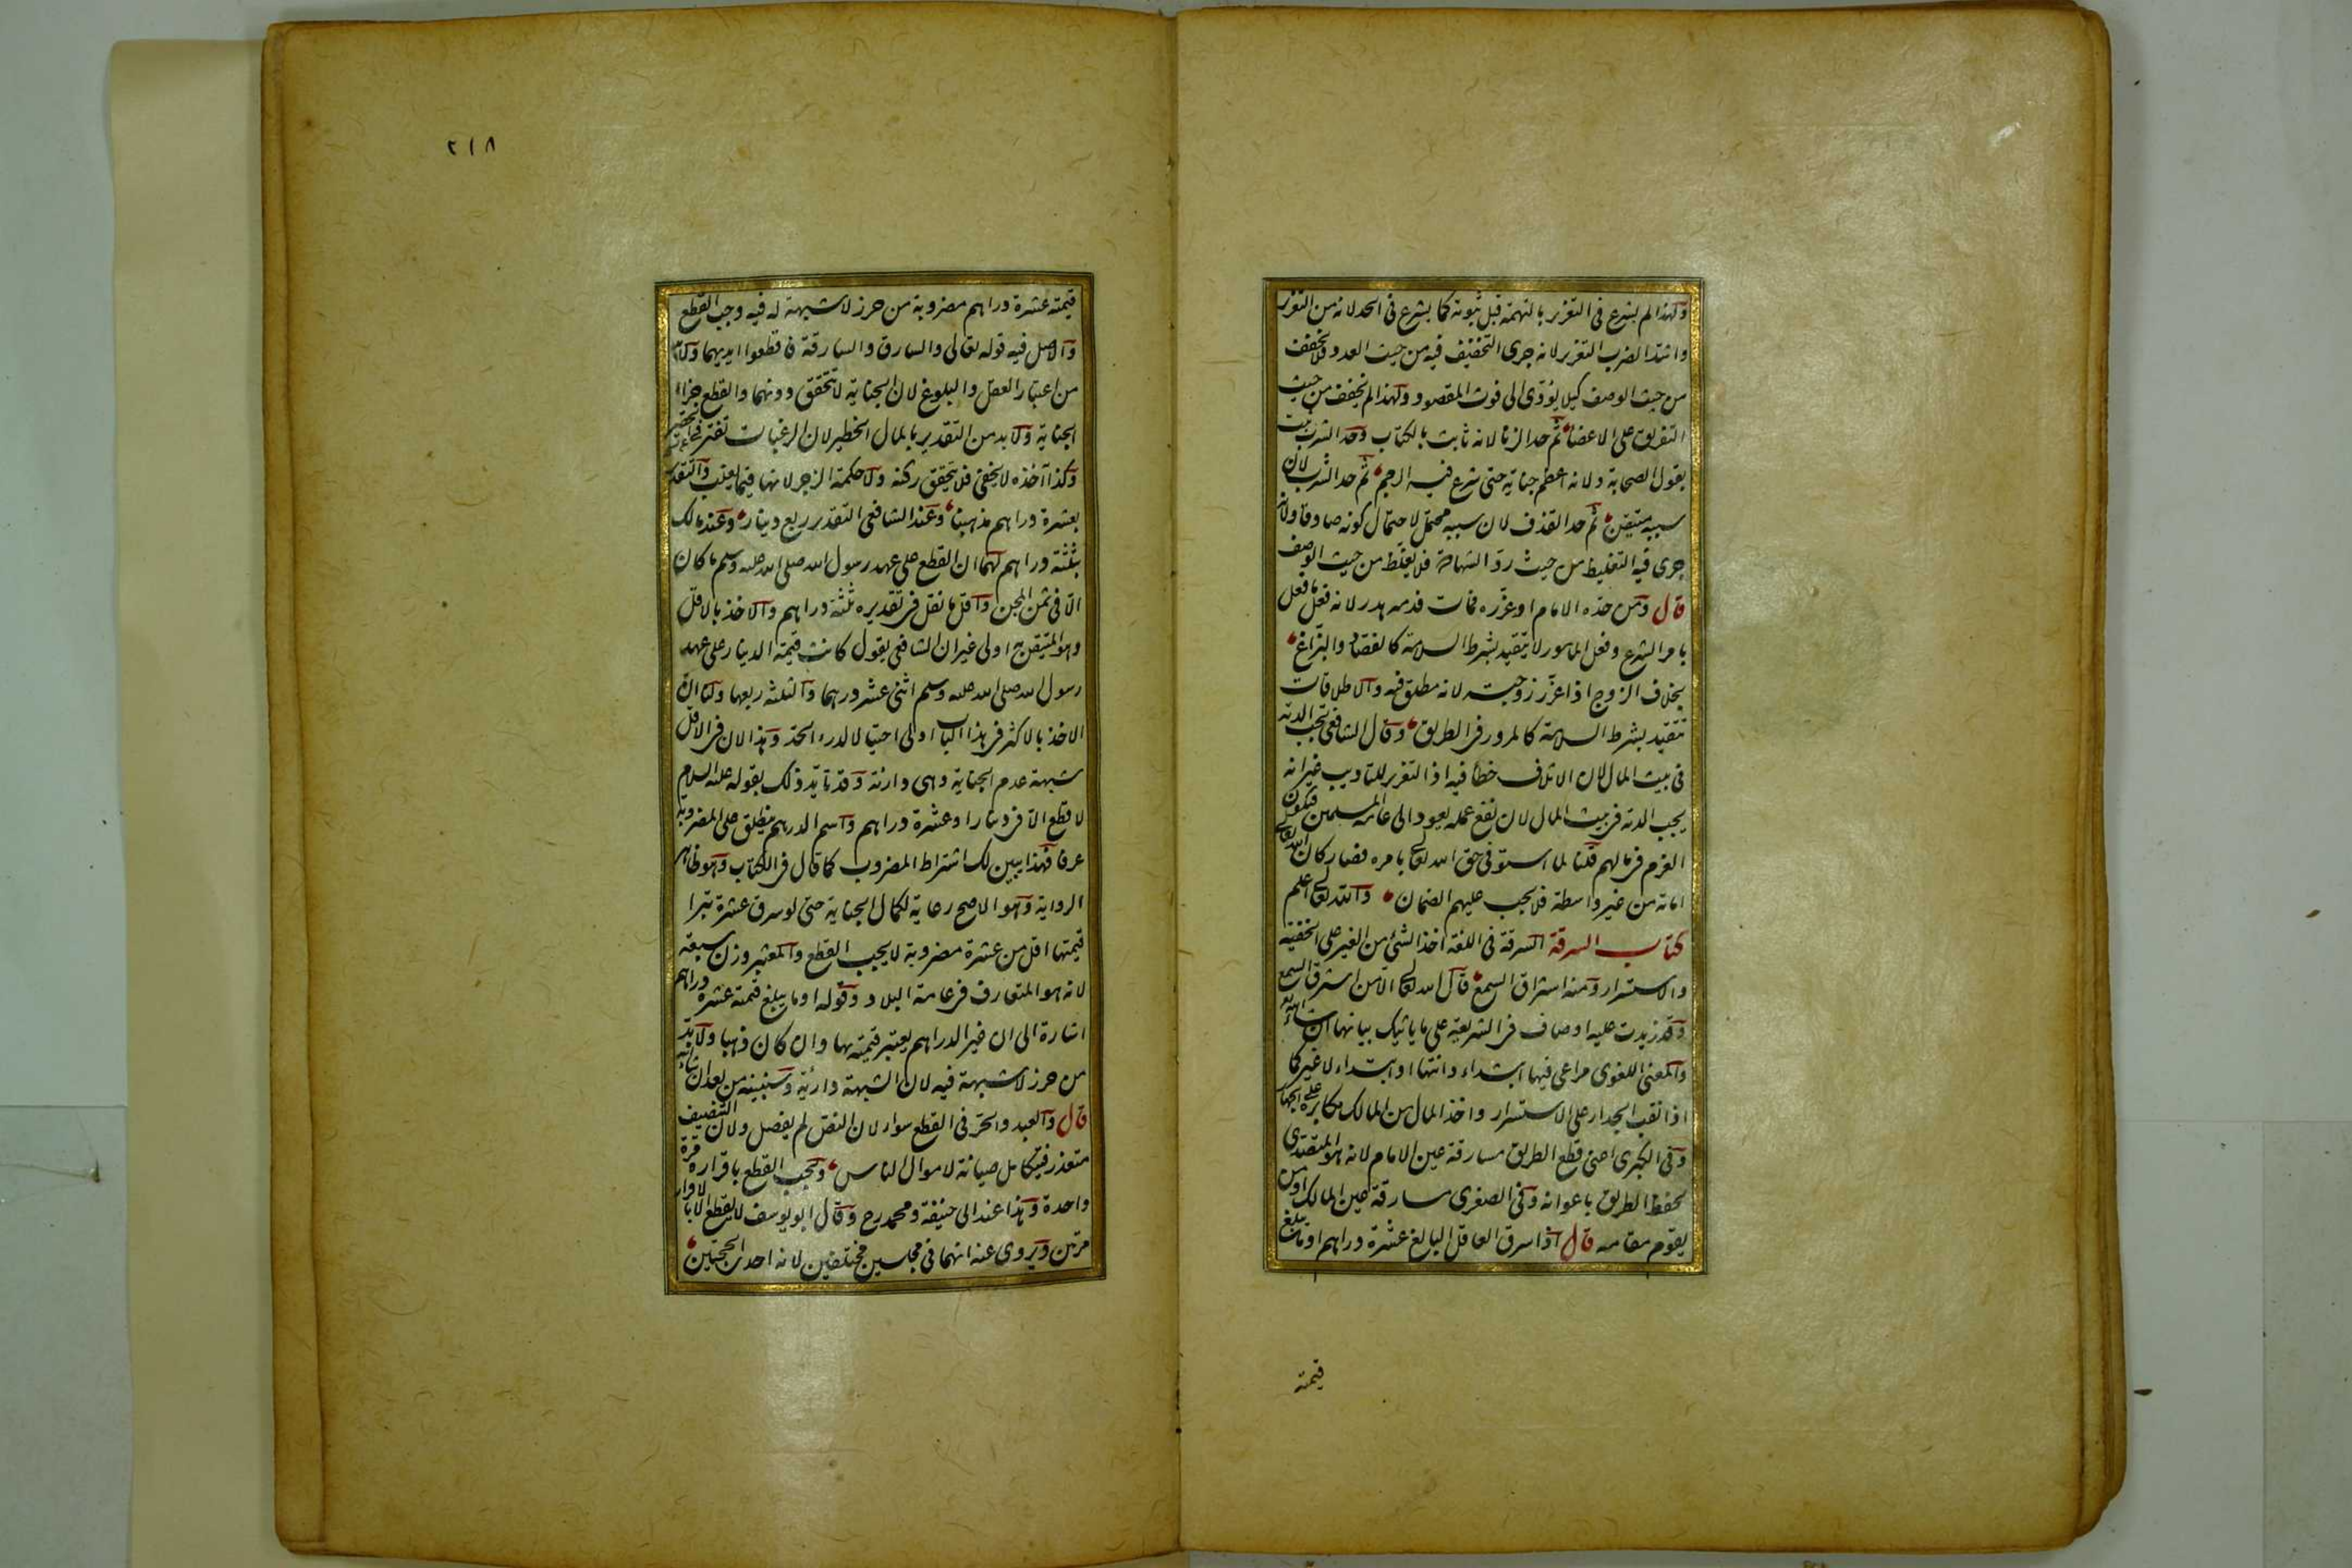 ولهذا لم يشرع في التعزير بالتهمة قبل ثبوته كما يشرع في الحد لانه من التعزير
واشد الضرب التعزير لانه جرى التخفيف فيه من حيث العدد فلا يخفف
من حيث الوصف كيلا يؤدى الى فوت المقصود ولهذا لم يخفف من حيث
التفريق على الاعضاء ثم حد الزنا لانه ثابت بالكتاب وحد الشرب ثبت
بقول الصحابة ولانه اعظم جناية حتى شرع فيه الرجم ثم حد الشرب لان
سببه متيقن ثم حد القذف لان سببه محتمل لاحتمال كونه صادقا ولانه
جرى فيه التغليظ من حيث رد الشهادة فلا يغلظ من حيث الوصف
قال ومن حده الامام او عزره فمات فدمه هدر لانه فعل ما فعل
بامر الشرع وفعل المامور لا يتقيد بشرط السلامة كالفصاد والبزاغ
بخلاف الزوج اذا عزر زوجته لانه مطلق فيه والاطلاقات
تتقيد بشرط السلامة كالمرور في الطريق وقال الشافعي تجب الدية
في بيت المال لان الاتلاف خطأ فيه اذ التعزير للتاديب غير انه
يجب الدية في بيت المال لان نفع عمله يعود الى عامة المسلمين فيكون
الغرم في مالهم قلنا لما استوفى حق الله تعالى بامره فصار كان الله تعالى
اماته من غير واسطة فلا يجب عليهم الضمان والله تعالى اعلم
كتاب السرقة السرقة في اللغة اخذ الشئ من الغير على الخفية
والاستسرار ومنه استراق السمع قال الله تعالى الا من استرق السمع
وقد زيدت عليه اوصاف في الشريعة على ما ياتيك بيانها ان شاء الله تعالى
والمعنى اللغوى مراعى فيها ابتداء وانتهاء او ابتداء لا غير كما
اذا نقب الجدار على الاستسرار واخذ المال من المالك مكابرة على الجهار
وفي الكبرى اعنى قطع الطريق مسارقة عين الامام لانه هو المتصدى
لحفظ الطريق باعوانه وفي الصغرى مسارقة عين المالك او من
يقوم مقامه قال اذا سرق العاقل البالغ عشرة دراهم او ما يبلغ
قيمته
٢١٨
قيمته عشرة دراهم مضروبة من حرز لا شبهة له فيه وجب القطع
والاصل فيه قوله تعالى والسارق والسارقة فاقطعوا ايديهما ولا بد
من اعتبار العقل والبلوغ لان الجناية لا تتحقق دونهما والقطع جزاء
الجناية ولا بد من التقدير بالمال الخطير لان الرغبات تفتر في الحقير
وكذا اخذه لا يخفى فلا يتحقق ركنه ولا حكمة الزجر لانها فيما يغلب والتقدير
بعشرة دراهم مذهبنا وعند الشافعي التقدير بربع دينار وعند مالك
بثلثة دراهم لهما ان القطع على عهد رسول الله صلى الله عليه وسلم ما كان
الا في ثمن المجن واقل ما نقل في تقديره ثلثة دراهم والاخذ بالاقل
وهو المتيقن به اولى غير ان الشافعي يقول كانت قيمة الدينار على عهد
رسول الله صلى الله عليه وسلم اثنى عشر درهما والثلثة ربعها ولنا ان
الاخذ بالاكثر في هذا الباب اولى احتيالا لدرء الحد وهذا لان في الاقل
شبهة عدم الجناية وهي دارئة وقد تايد ذلك بقوله عليه السلام
لا قطع الا في دينار او عشرة دراهم واسم الدرهم يطلق على المضروبة
عرفا فهذا يبين لك اشتراط المضروب كما قال في الكتاب وهو ظاهر
الرواية وهو الاصح رعاية لكمال الجناية حتى لو سرق عشرة تبرا
قيمتها اقل من عشرة مضروبة لا يجب القطع والمعتبر وزن سبعة
لانه هو المتعارف في عامة البلاد وقوله او ما يبلغ قيمته عشرة دراهم
اشارة الى ان غير الدراهم يعتبر قيمته بها وان كان ذهبا ولا بد
من حرز لا شبهة فيه لان الشبهة دارئة وسنبينه من بعد ان شاء الله
قال والعبد والحر في القطع سواء لان النص لم يفصل ولان التنصيف
متعذر فيتكامل صيانة لاموال الناس ويجب القطع باقراره مرة
واحدة وهذا عند ابى حنيفة ومحمد رح وقال ابو يوسف لا يقطع الا باقرار
مرتين ويروى عنه انهما في مجلسين مختلفين لانه احدى الحجتين